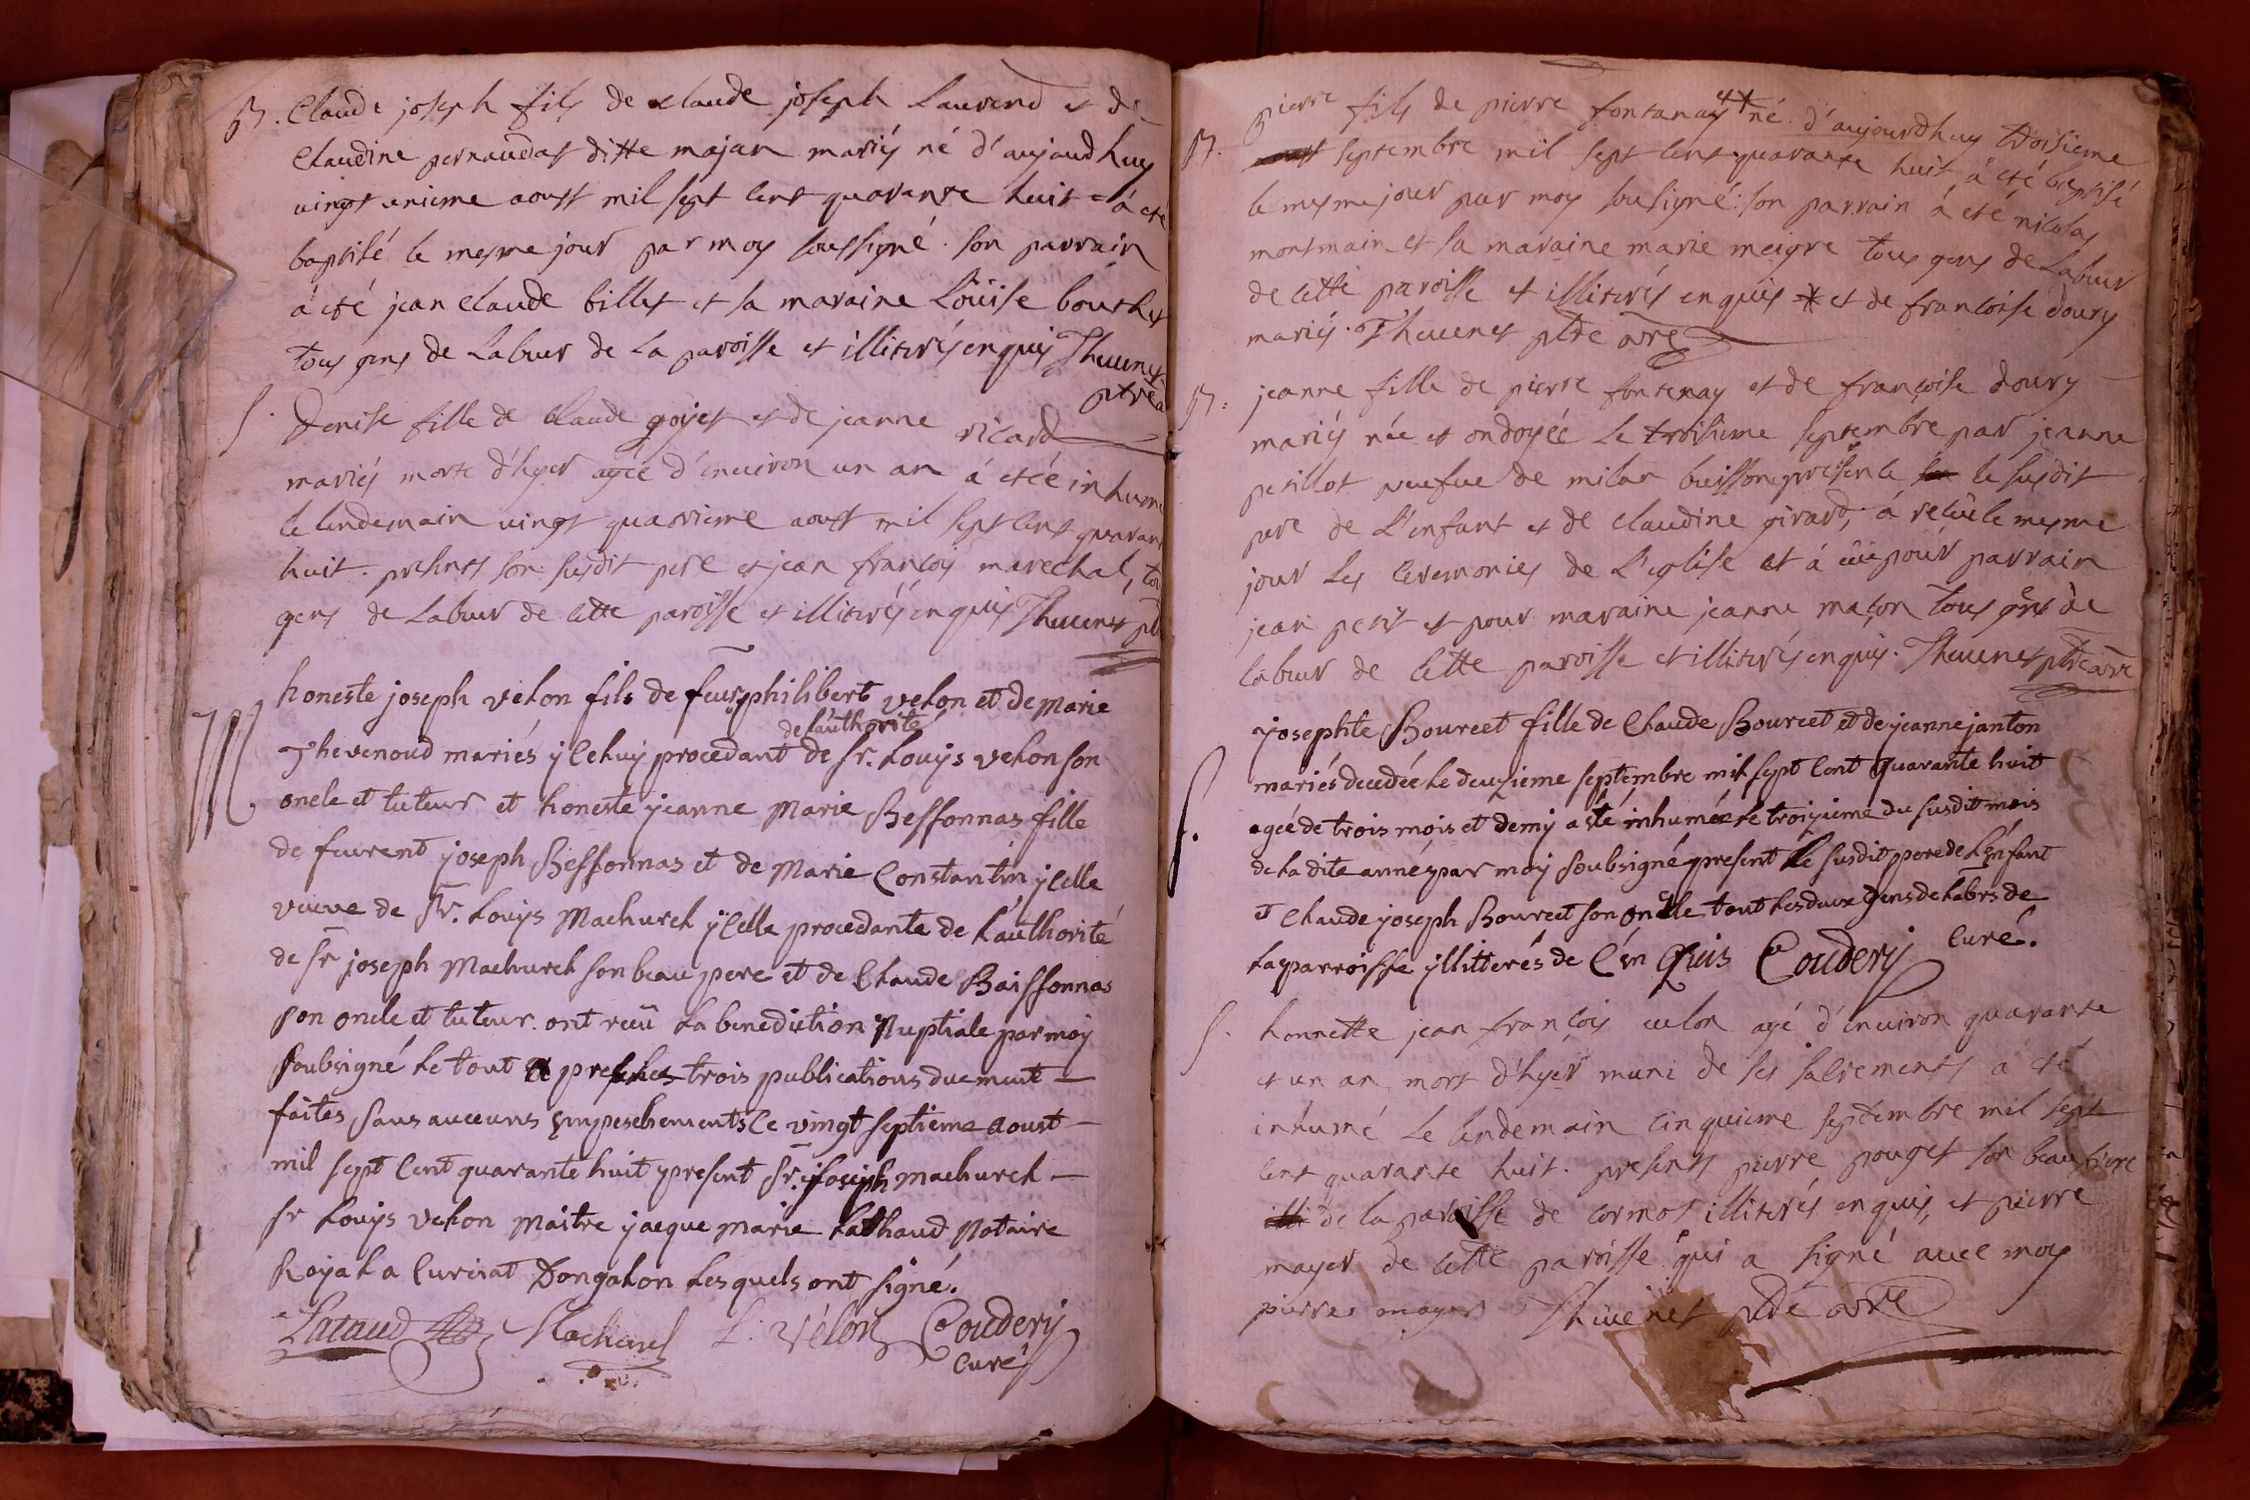 B. Claude joseph fils de claude joseph Laurend et de
Claudine pernaudat ditte majan mariés né d'aujaudhuy
vingt unieme aoust mil sept cent quarante huit a eté
baptisé le mesme jour par moy soussigné. son parrain
à eté jean claude billet et sa maraine Loüise bouchet
tous gens de Labeur de La paroisse et illiterés enquis Theuenet
ptre
S. Denise fille de Claude goyet et de jeanne ricard
mariés morte d'hyer agée d'environ un an á etéé inhumé
le lendemain vingt quatrieme aoust mil sept cent quarante
huit. presents son susdit pere et jean françois marechal, tous
gens de Labeur de cette paroisse et illiterés enquis Theuenet ptre
M. honeste joseph velon fils de feu philibert velon et de Marie
de l'authorité
Thevenoud mariés yceluy procedant de Sr. Louys velon son
oncle et tuteur et honeste jeanne Marie Bessonnas fille
de feu joseph Bessonnas et de Marie Constantin ycelle
veuve de Sr. Louys Machurel ycelle procedante de L'authorité
de Sr joseph Machurel son beau pere et de Claude Baissonnas
son oncle et tuteur. ont reeû La benediction Nuptiale par moy
soubsigné le tout trois publications duement
faites sans aucuns empeschements Ce vingt septieme aoust
mil sept Cent quarante huit present Sr. joseph machurel
Sr Louys velon Maitre jacque marie Lathaud Notaire
Royal a Curciat Dongalon Lesquels ont signé.
Lataud Machurel L. vélon Coudery
curé
B. pierre fils de pierre fontanay * né d'aujourdhuy troisieme
septembre mil sept cent quarante huit à eté baptisé
le mesme jour par moy sousigné: son parrain à eté nicolas
montmain et sa maraine marie meigre tous gens de Labeur
de cette paroisse et illiterés enquis * et de francoise doury
mariés. Theuenet ptre
B. jeanne fille de pierre fontenay et de françoise doury
mariés née et ondoyéé le troisieme septembre par jeanne
petillot veufue de milan buisson presence le susdit
pere de L'enfant et de claudine girard, à reçu le mesme
jour les ceremonies de L'eglise et à eü pour parrain
jean petit et pour maraine jeanne maçon tous gens de
labeur de cette paroisse et illiterés enquis. Theuenet ptre
S. josephte Bourcet fille de Claude Bourcet et de jeanne janton
mariés decedée le deuzieme septembre mil sept Cent quarante huit
agée de trois mois et demy a sté inhumée le troizieme du susdit mois
de La dite anné par moy soubsigné present Le susdit pere de L'enfant
et Claude joseph Bourcet son oncle tout les deux gens de Labrs de
La parroisse yllitterés de C'en Quis Coudery Curé.
S. honnette jean françois velon agé d'environ quarante
et un an, mort d'hyer muni de ses sacrements a eté
inhumé le lendemain cinquieme septembre mil sept
cent quarante huit. presents pierre pouget son beaufrere
de la paroisse de cormos illiterés enquis, et pierre
mayer de cette paroisse qui a signé avec moy
pierre mayer Theuenet ptre